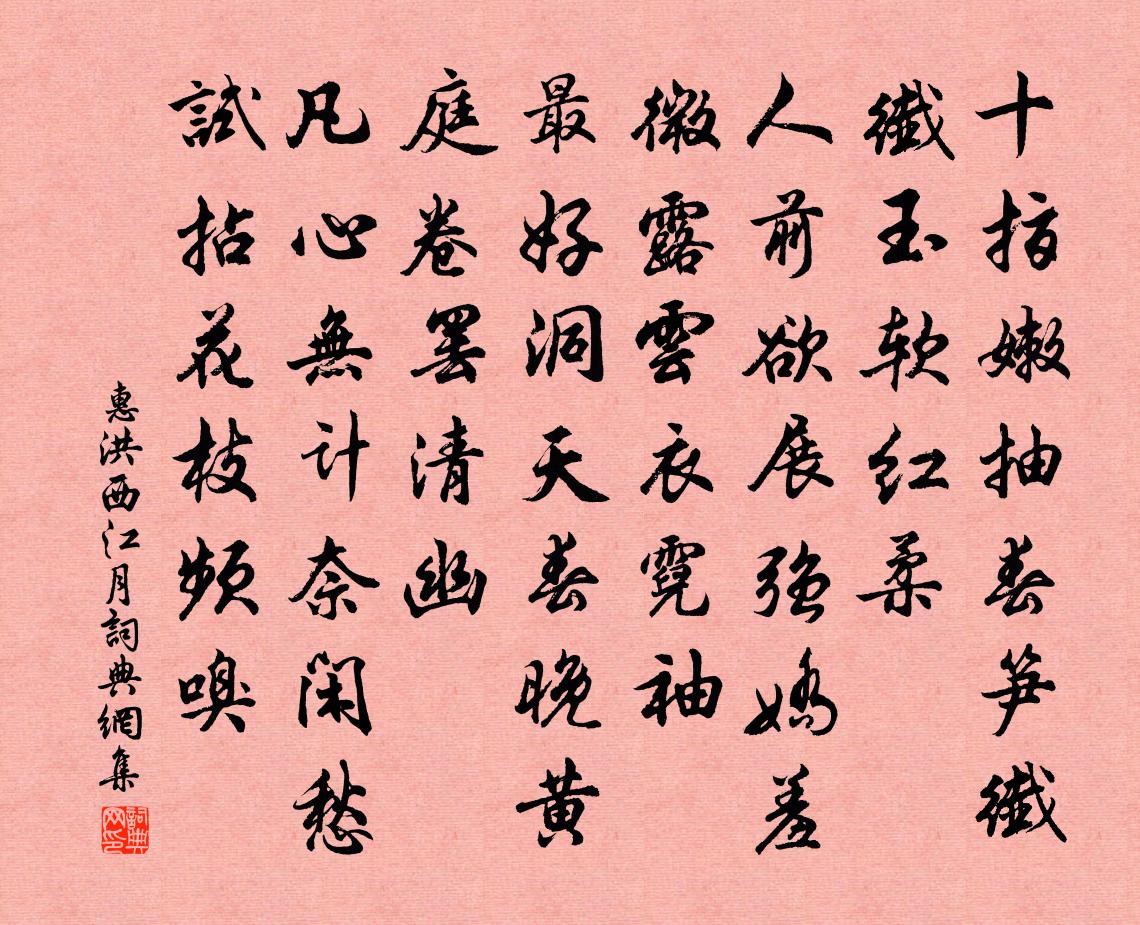 十指嫩抽春笋纖
纖玉软红柔
人前欲展强嬌羞
微露雲衣霓袖
最好洞天春晚黄
庭卷罢清幽
凡心無计奈闲愁
試拈花枝频嗅
惠洪西江月詞典網集
詞典网印